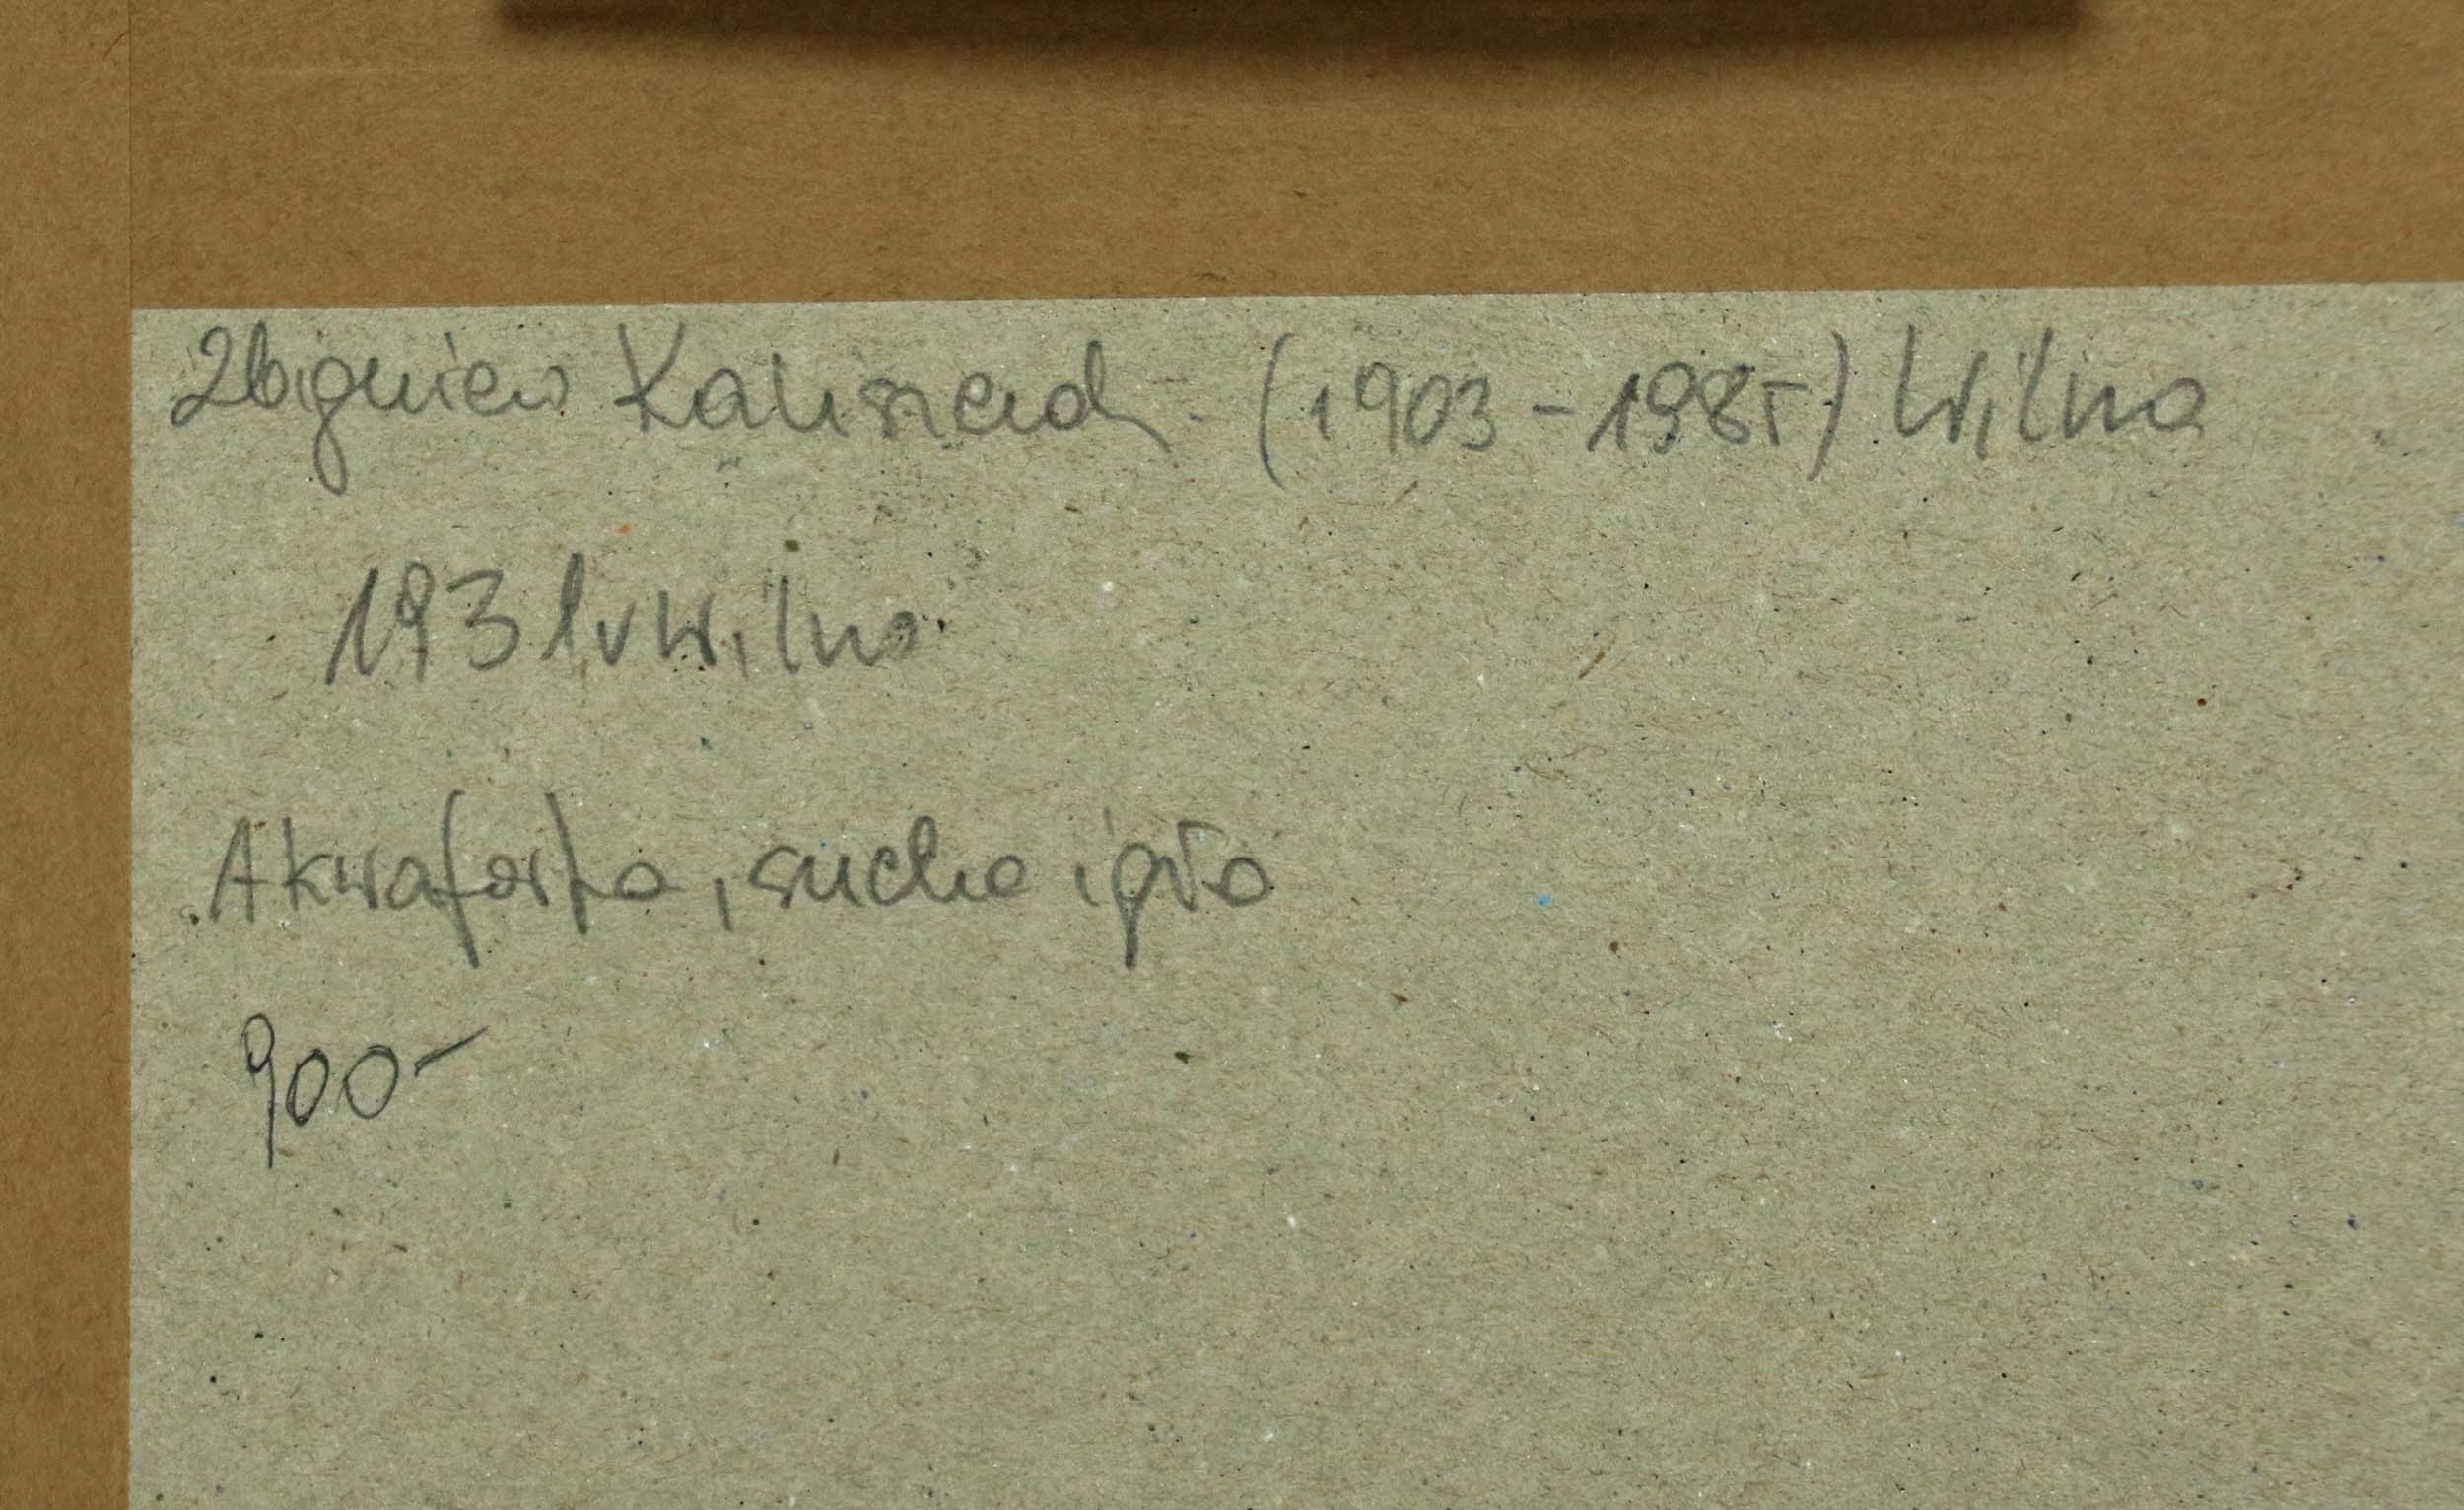 Zbigniew Kaliszczak (1903-1985) Wilno
1931 v Wilno
Akwaforta, sucha igła
900-